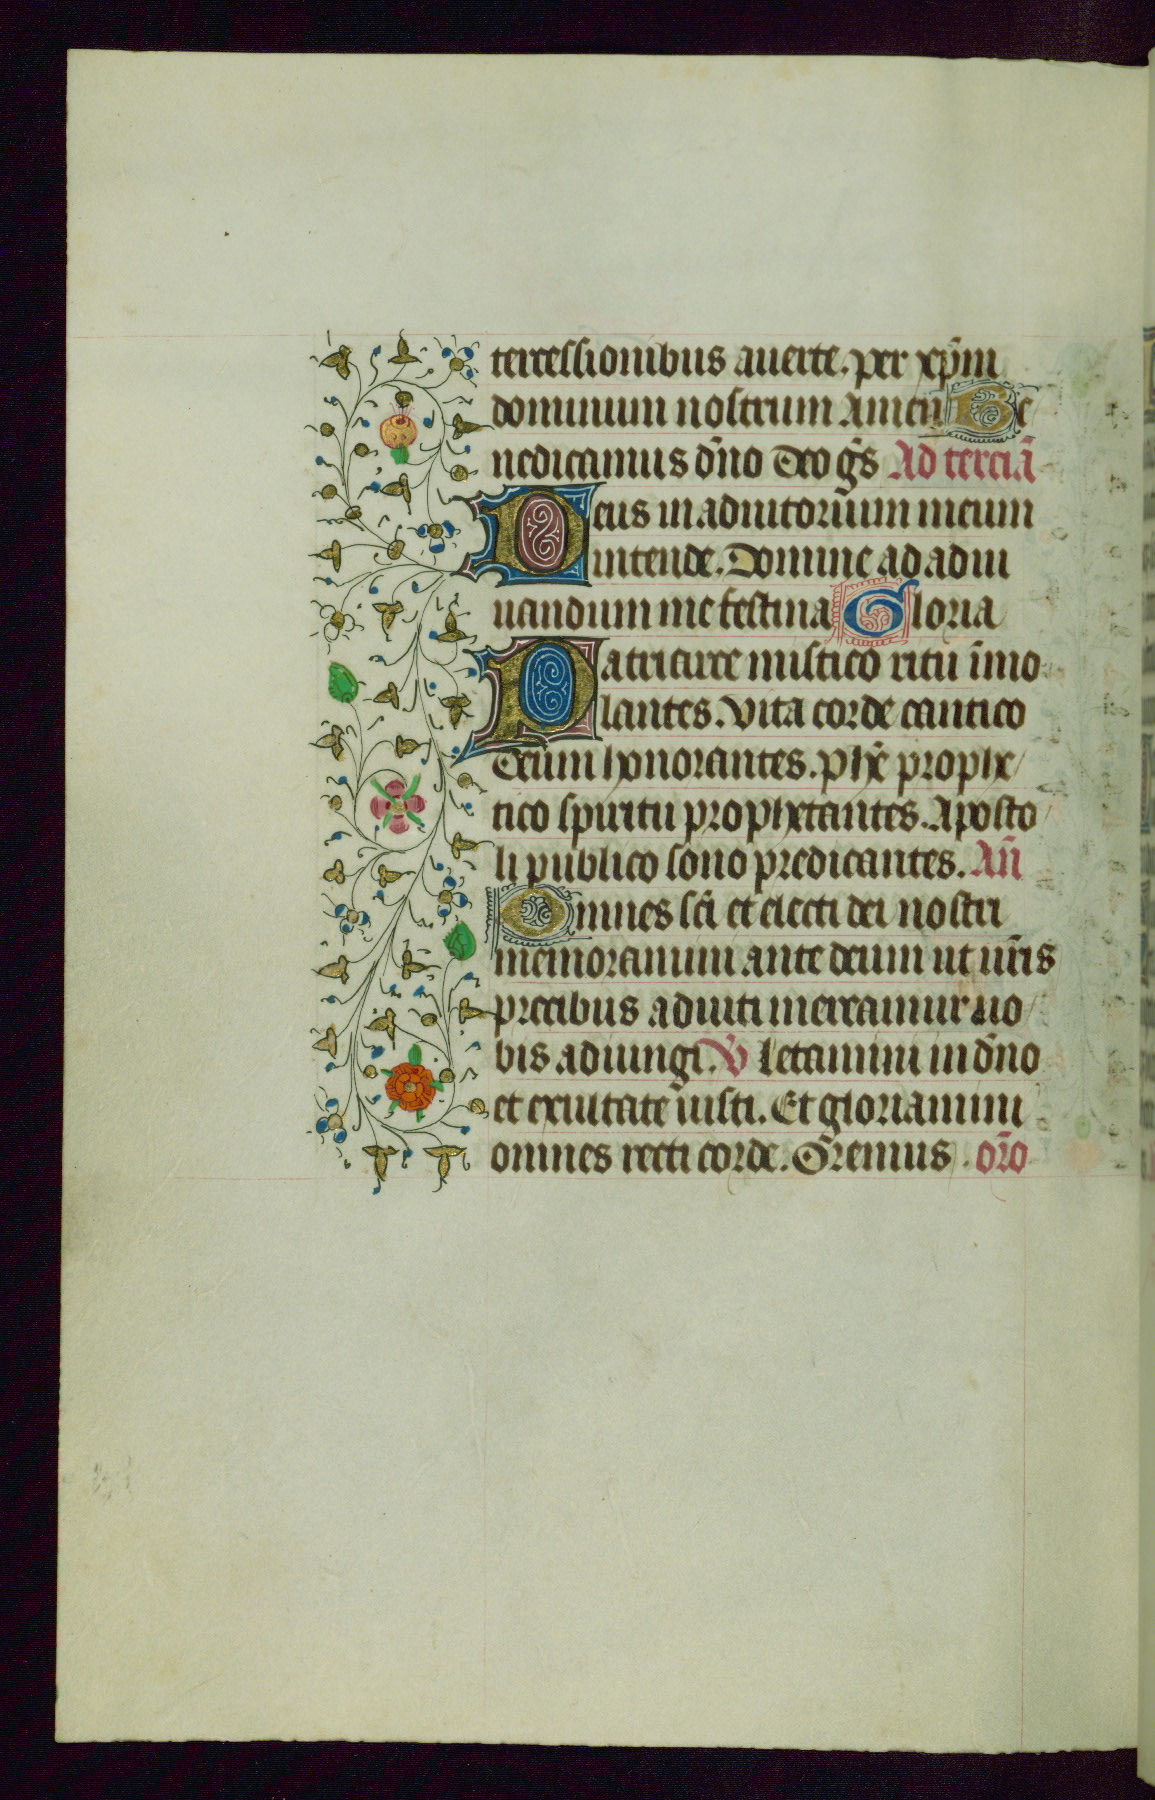 tercessionibus auerte. per xp̄m
dominum nostrum Amen Be
nedicamus dn̄o Deo gr̄s Ad terciā
Deus in adiutorium meum
intende. Domine ad adiu
uandum me festina Gloria
Patriarce mistico ritu im̄o
lantes. Vita corde cantico
deum honorantes. phē prophe
tico spiritu prophetantes. Aposto
li publico sono predicantes. An̄
Omnes sc̄i et electi dei nostri
memoramini ante deum ut ur̄is
precibus adiuti mereamur uo
bis adiungi. V̄ Letamini in dn̄o
et exultate iusti. Et gloriamini
omnes recti corde. Oremus. or̄o